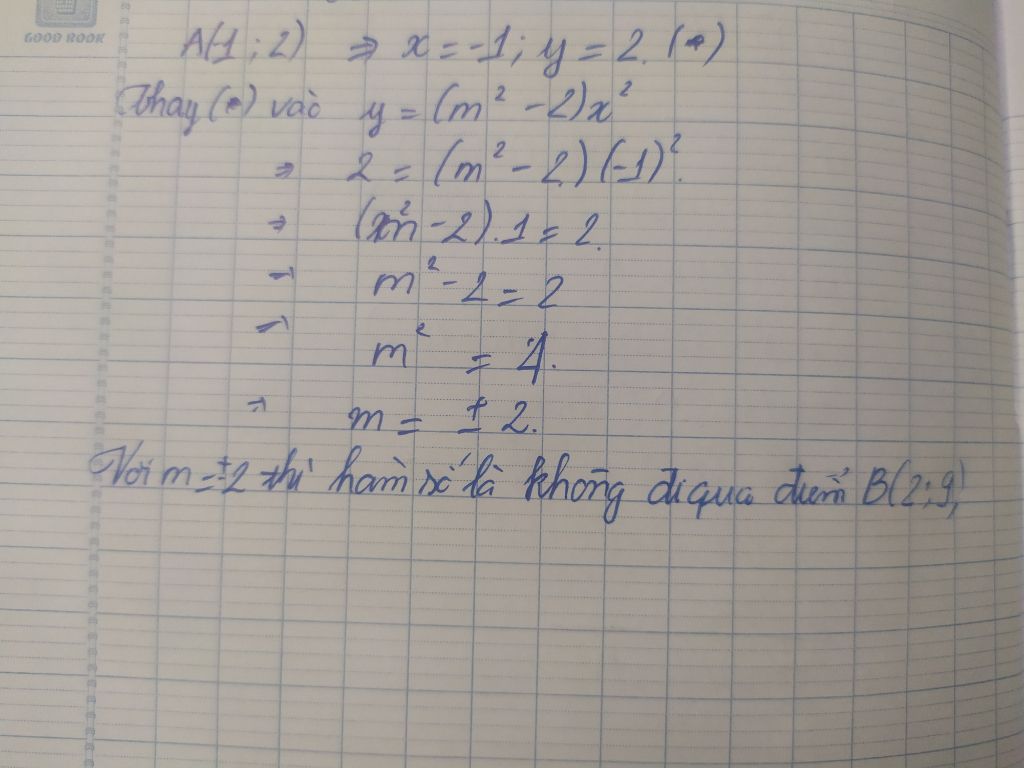 GOOD BOOK
A(-1 ; 2) ⇒ x = -1 ; y = 2. (*)
Thay (*) vào y = (m² - 2)x²
⇒ 2 = (m² - 2)(-1)².
⇒ (m² - 2).1 = 2.
⇒ m² - 2 = 2
⇒ m² = 4.
⇒ m = ± 2.
Với m = ±2 thì hàm số là không đi qua điểm B(2;9)